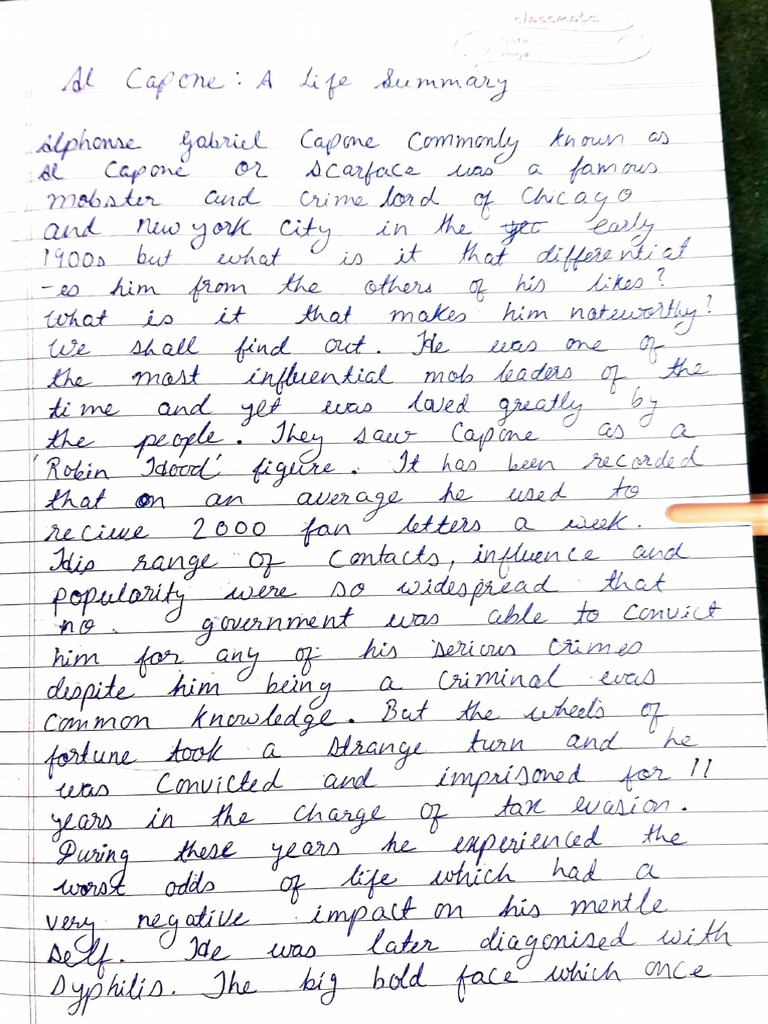 classmate
Date
Page
Al Capone: A Life Summary
Alphonse Gabriel Capone Commonly known as
Al Capone or Scarface was a famous
mobster and crime lord of Chicago
and New york City in the early
1900s but what is it that differentiat
-es him from the others of his likes?
What is it that makes him noteworthy?
We shall find out. He was one of
the most influential mob leaders of the
time and yet was loved greatly by
the people. They saw Capone as a
'Robin Hood' figure. It has been recorded
that on an average he used to
recieve 2000 fan letters a week.
His range of contacts, influence and
popularity were so widespread that
no government was able to convict
him for any of his serious crimes
despite him being a criminal was
common knowledge. But the wheels of
fortune took a strange turn and he
was convicted and imprisoned for 11
years in the charge of tax evasion.
During these years he experienced the
worst odds of life which had a
very negative impact on his mentle
self. He was later diagonised with
syphilis. The big bold face which once